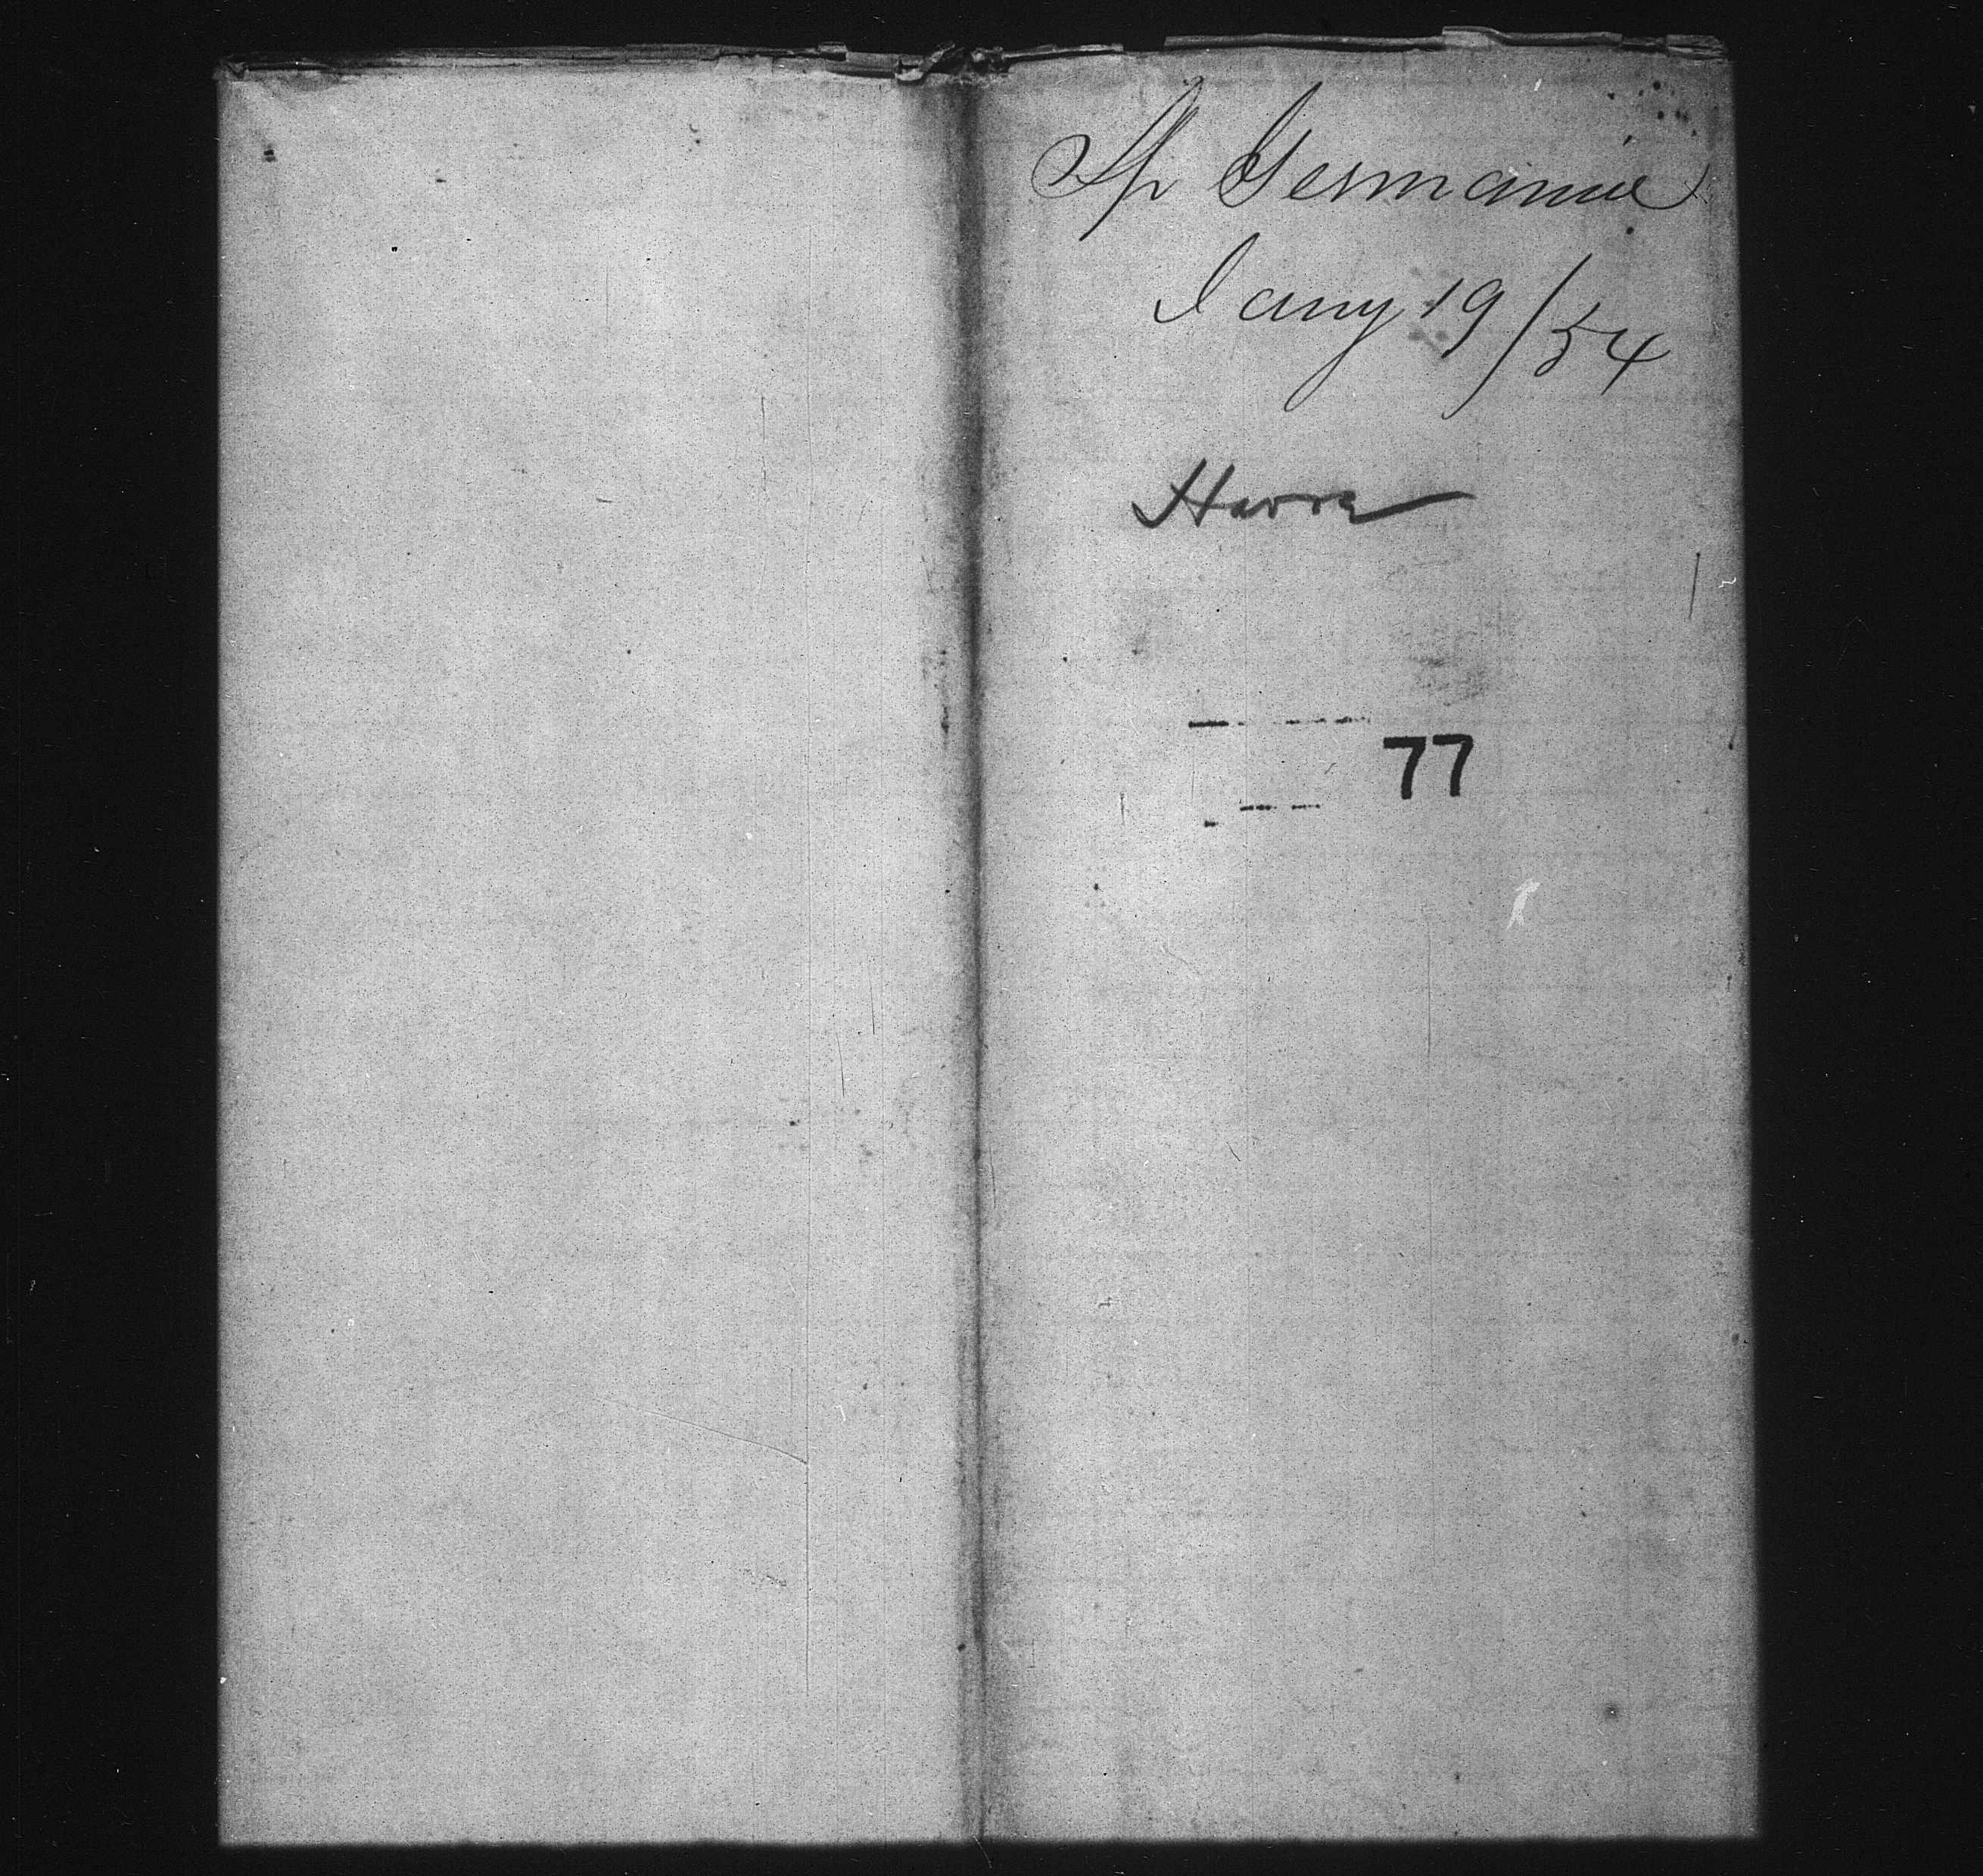 Sp Germania
Jany 19/54
Havre
77